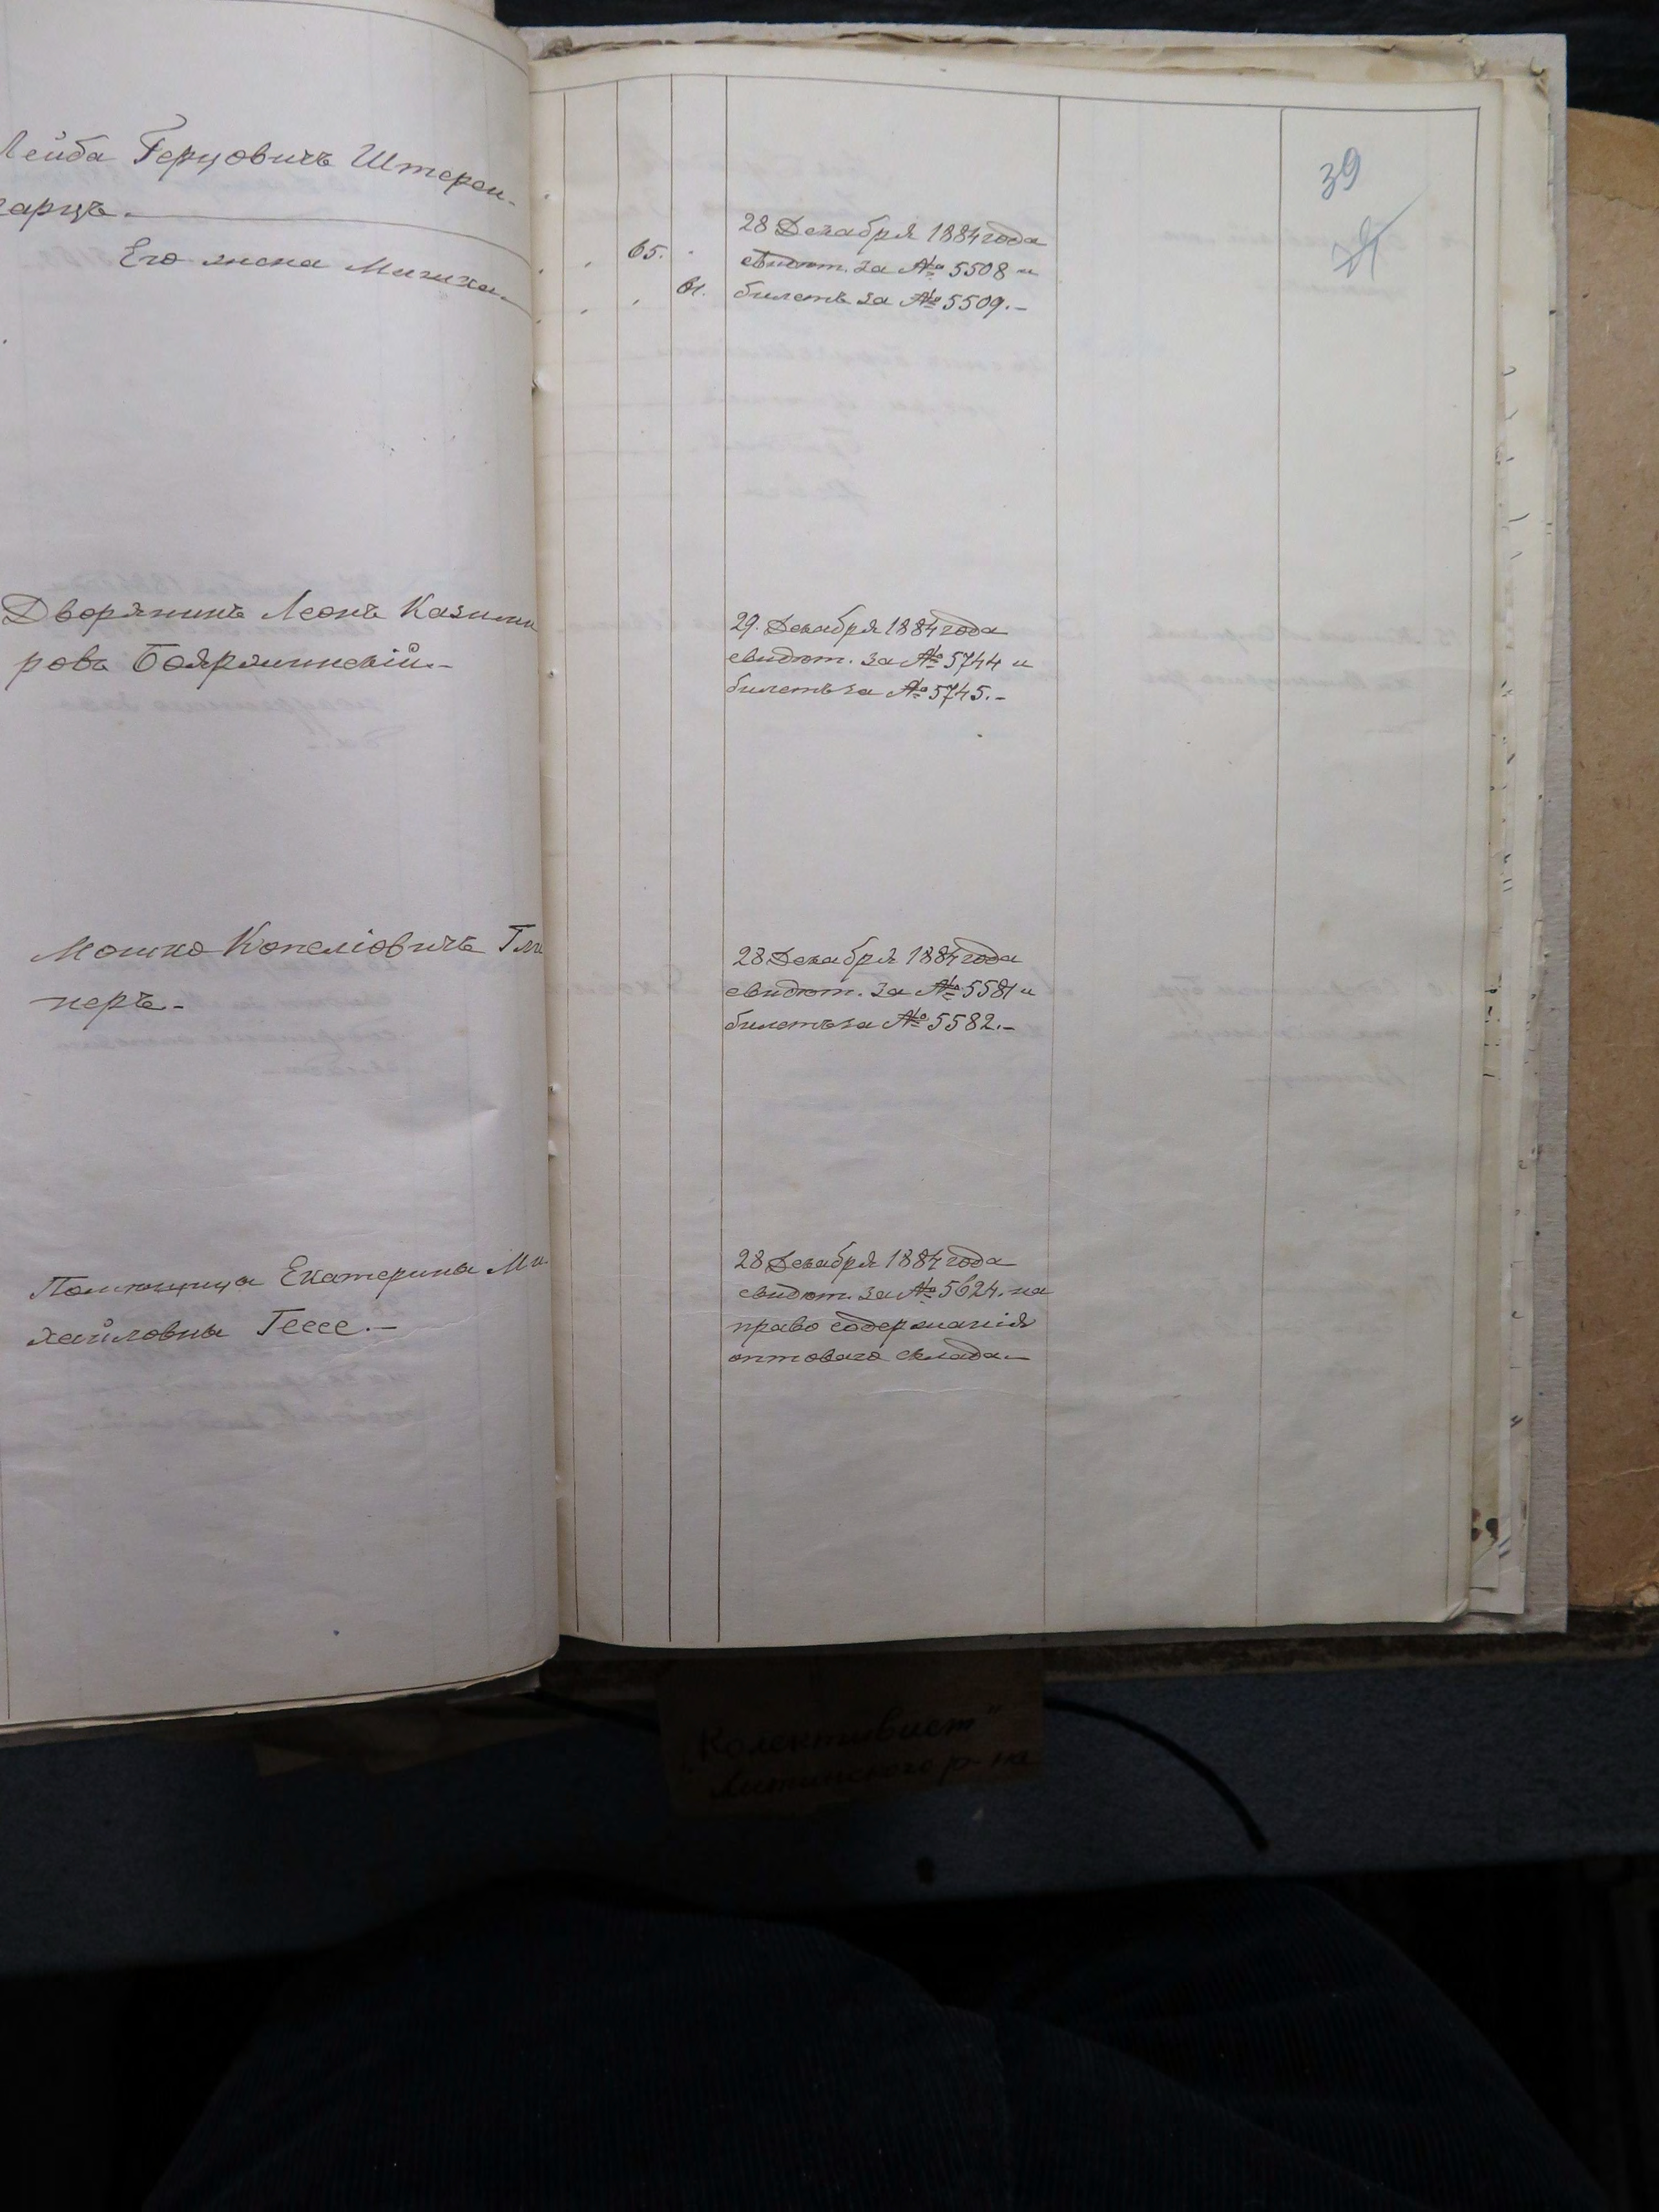 Лейба Герцовичъ Штерен-
гарцъ.-
Его жена Мигиха.
Дворянинъ Леонъ Казими
ровъ Бояржинскій.-
Мошко Копеліовичъ
неръ.-
Помѣщица Екатерина Ми
хайловна Гессе.-
39
65.
61.
28 Декабря 1884 года
свидѣт. за № 5508 и
билетъ за № 5509.-
29. Декабря 1884 года
свидѣт. за № 5744 и
билетъ за № 5745.-
28 Декабря 1884 года
свидѣт. за № 5581 и
билетъ за № 5582.-
28 Декабря 1884 года
свидѣт. за № 5624. на
право содержанія
оптоваго склада.-
"Колективист"
Литинского р-на